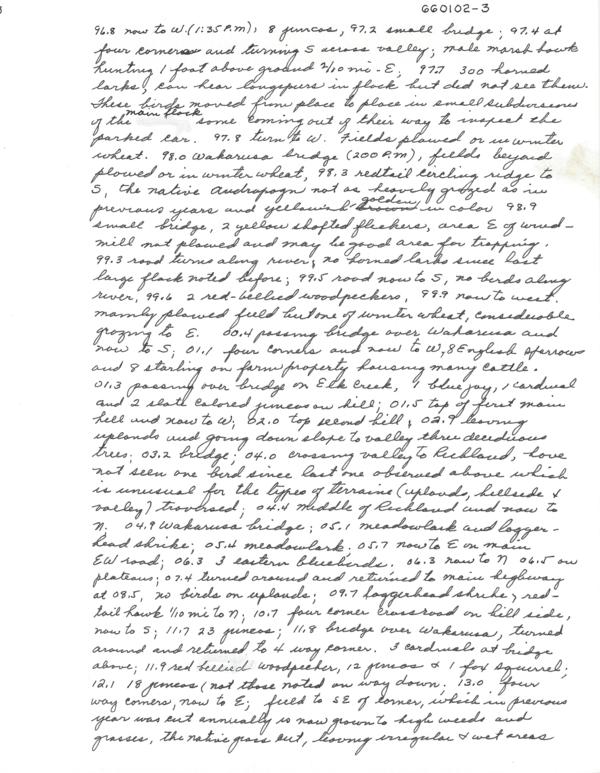 660102-3
96.8 now to W. (1:35 P.M); 8 juncos, 97.2 small bridge; 97.4 at
four corners and turning S across valley; male marsh hawk
hunting 1 foot above ground 2/10 mi - E; 97.7 300 horned
larks, can hear longspurs in flock but did not see them.
These birds moved from place to place in small subdivisions
of the main flock some coming out of their way to inspect the
parked car. 97.8 turn to W. Fields plowed or in winter
wheat. 98.0 Wakarusa bridge (200 P.M), fields beyond
plowed or in winter wheat, 98.3 redtail circling ridge to
S, the native Andropogn not as heavily grazed as in
previous years and yellowish golden brown in color 98.9
small bridge, 2 yellow shafted flickers, area E of wind-
mill not plowed and may be good area for trapping.
99.3 road turns along river; no horned larks since last
large flock noted before; 99.5 road now to S, no birds along
river, 99.6 2 red-bellied woodpeckers, 99.9 now to west.
mainly plowed field but one of winter wheat, considerable
grazing to E. 00.4 passing bridge over Wakarusa and
now to S; 01.1 four corners and now to W, 8 English sparrows
and 8 starling on farm property housing many cattle.
01.3 passing over bridge on Elk Creek, 1 blue jay, 1 cardinal
and 2 slate colored juncos on hill; 01.5 top of first main
hill and now to W; 02.0 top second hill; 02.9 leaving
uplands and going down slope to valley thru deciduous
trees; 03.2 bridge; 04.0 crossing valley to Richland, have
not seen one bird since last one observed above which
is unusual for the types of terraine (uplands, hillside &
valley) traversed; 04.4 middle of Richland and now to
N. 04.9 Wakarusa bridge; 05.1 meadowlark and logger-
head shrike; 05.4 meadowlark. 05.7 now to E on main
EW road; 06.3 3 eastern bluebirds. 06.3 now to N 06.5 on
plateaus; 07.4 turned around and returned to main highway
at 08.5, no birds on uplands; 09.7 loggerhead shrike, red-
tail hawk 1/10 mi to N; 10.7 four corner crossroad on hill side,
now to S; 11.7 23 juncos; 11.8 bridge over Wakarusa, turned
around and returned to 4 way corner. 3 cardinals at bridge
above; 11.9 red bellied woodpecker, 12 juncos & 1 fox squirrel;
12.1 18 juncos (not those noted on way down; 13.0 four
way corners, now to E; field to SE of corner, which in previous
year was cut annually is now grown to high weeds and
grasses, the native grass cut, leaving irregular & wet areas